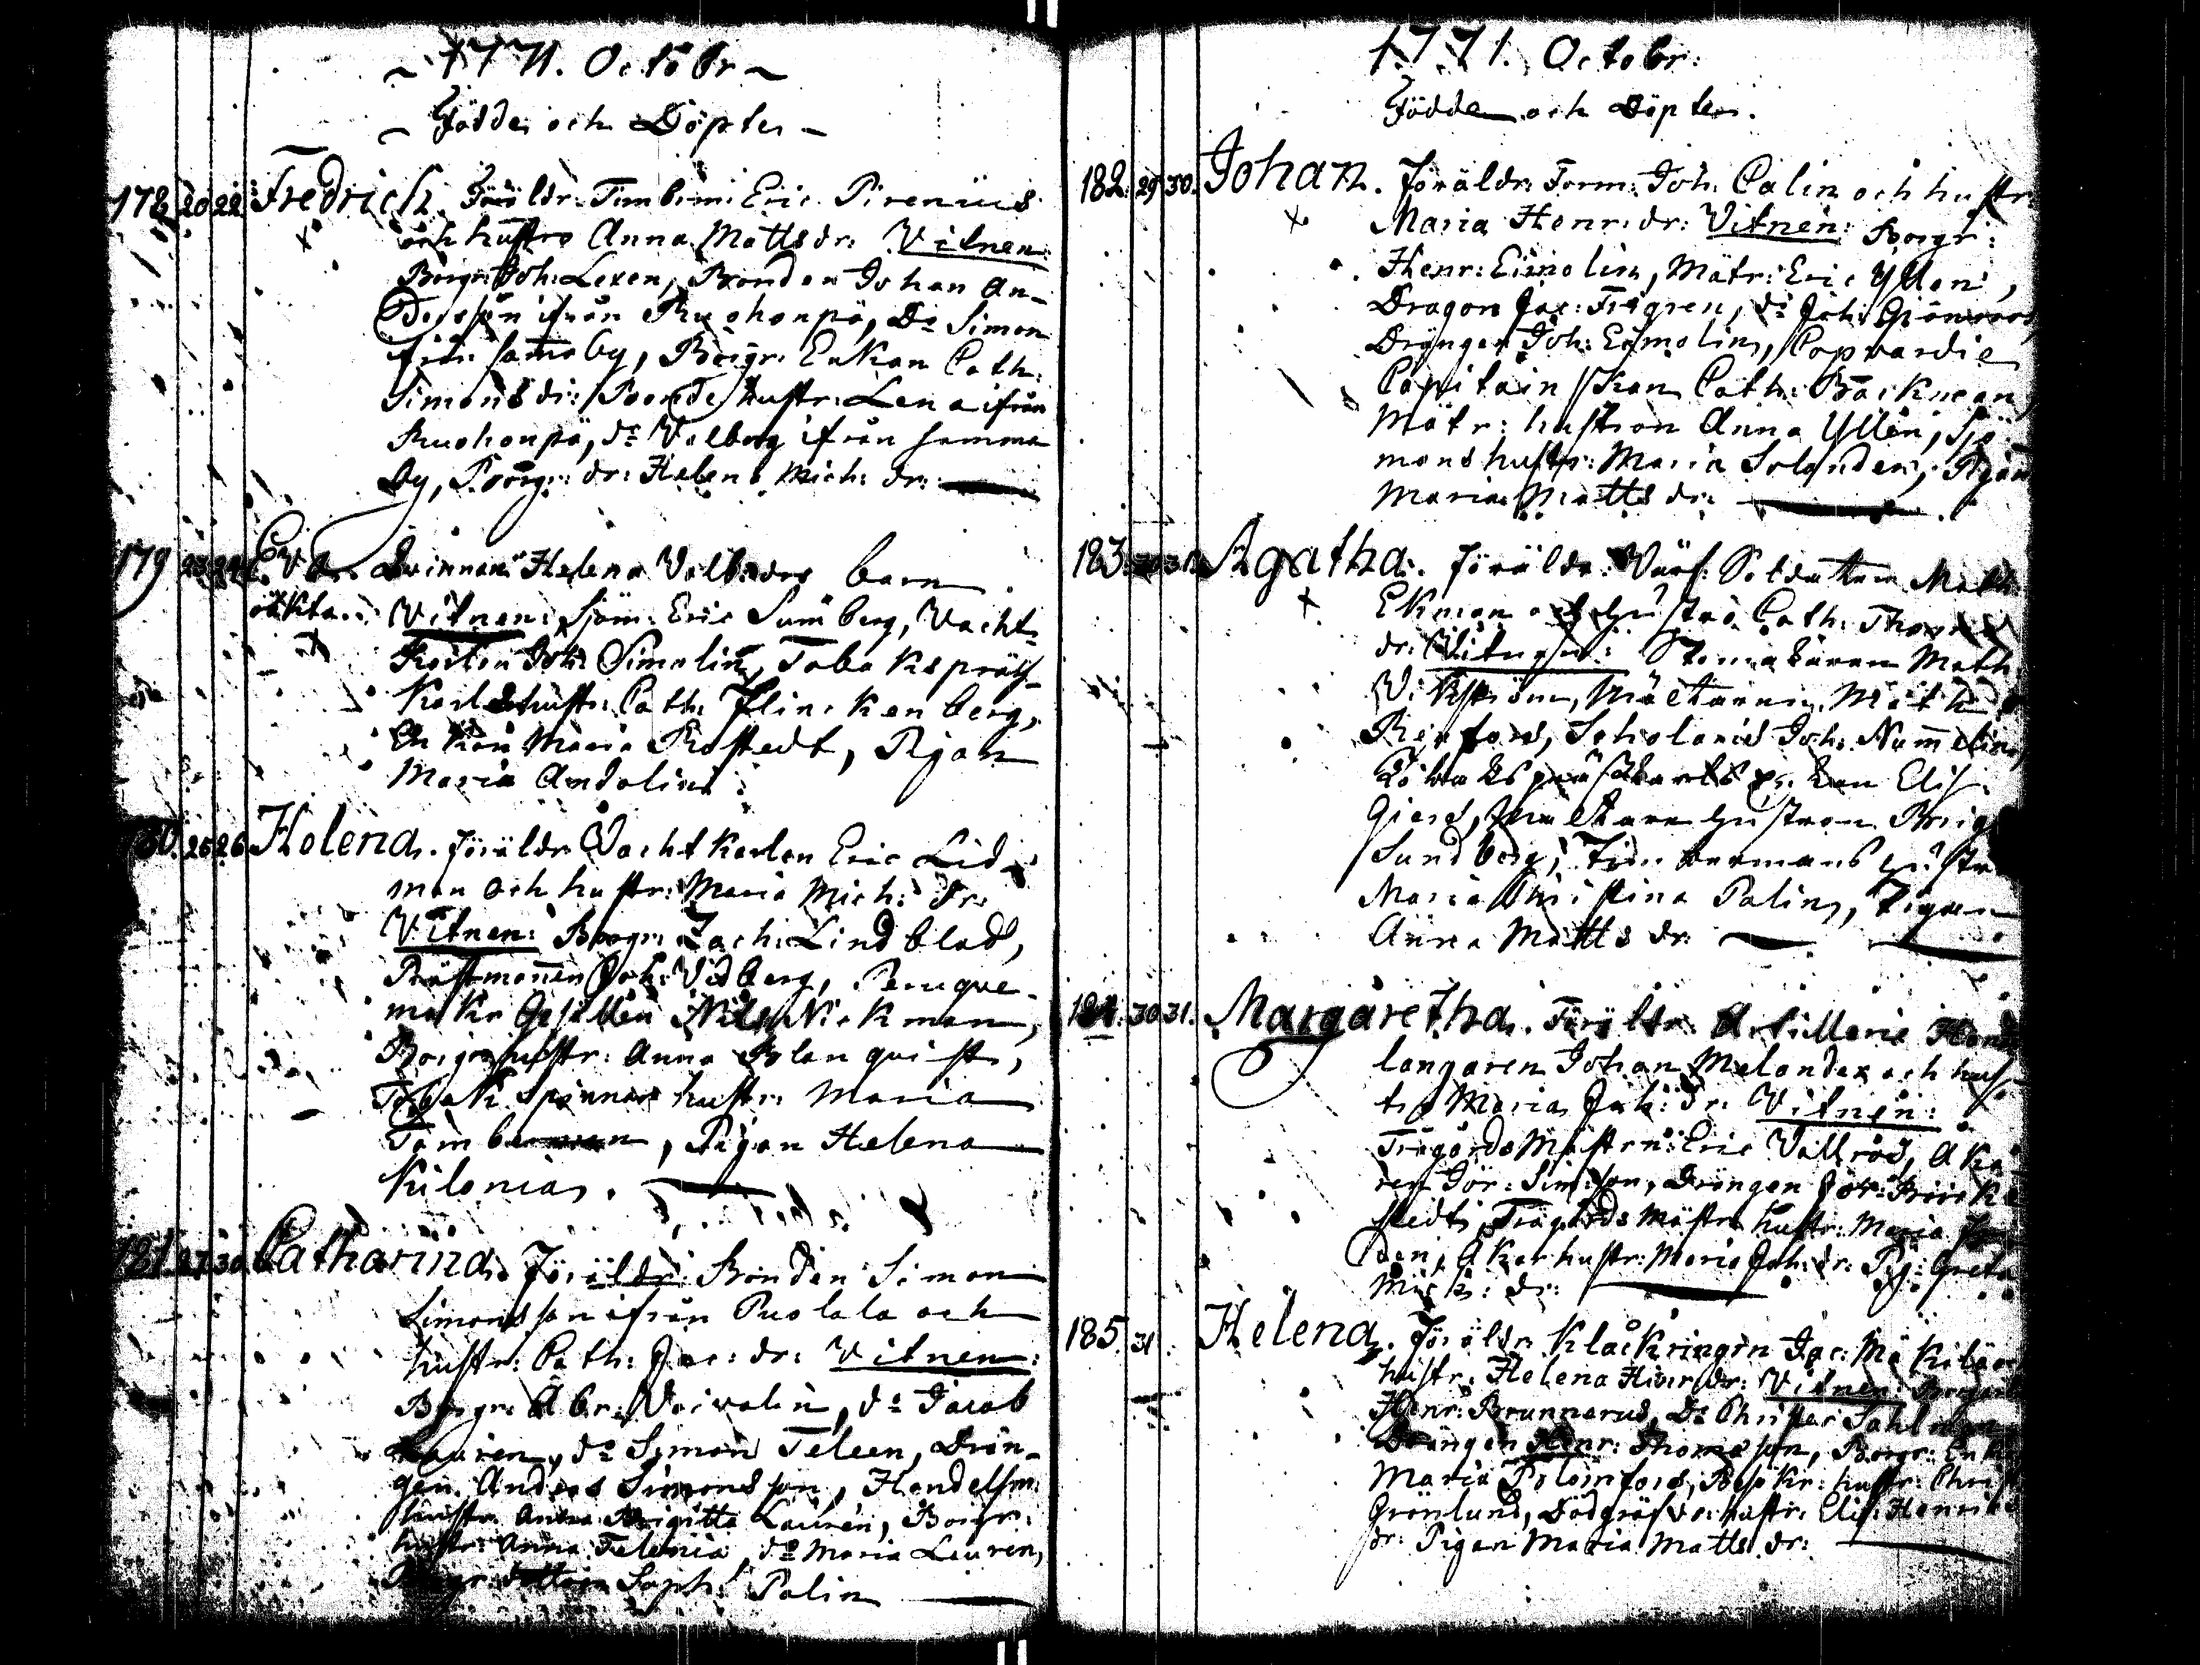 1771. Octobr
Födde och Döpte
178 20 22 Fredrich. Föräldr. Timberm: Eric Pirenius
och hustro Anna Mattsdr: Vitnen:
Borgr: Joh: Lexen, Bonden Johan An-
dersson ifrån Ruohonpä, Do Simon
från sama by, Borgr: Enkan Cath:
Simons dr: Bonde hustr: Lena ifrån
Ruohonpä, do Valborg ifrån samma
by, Borgr: dr: Helena Mich: dr:
179 Eva. Qvinnan Helena barn
oäkta. Vitnen: Sjöm: Eric Sumberg, Vacht
Karlen Joh: Simolin, Tobakspräss
Karls hustr: Cath: Flinckenberg,
Enkan Maria Rostedt, Pigan
Maria Andolin:
180. 25 26 Helena. Föräldr. Vachtkarlen Eric Lid-
man och hustr: Maria Mich: dr:
Vitnen: Borgr: Zach: Lindblad,
Joh: Vidberg, Peruque-
makr Gesällen Nils Nickman,
Borgr hustr: Anna Blanquist,
Tobak Spinnar hustr: Maria
, Pigan Helena
Kilonia.
181. 27 30 Catharina. Föräldr. Bonden Simon
Simonsson ifrån Puolala och
hustr: Cath: Jac: dr: Vitnen:
Borgr: Abr: Voivalin, do Jacob
Lauren, do Simon Teleen, Drän-
gen Anders Simonsson, Handelsm:
hustr. Anna Brigitta Lauren, Borgr:
hustr: Anna Telenia, do Maria Lauren,
Borgr: dottren Soph: Palin
1771. Octobr:
Födde och Döpte.
182. 29 30. Johan. Föräldr: Torm: Joh: Calin och hustr:
Maria Henr: dr: Vitnen: Borgr:
Henr: Eimolin, Mätr: Eric Yllen,
Dragon Jac: Frigren, do Joh:
Drängen Joh: Eimolin, Copvardie
Capitain Fkan Cath: Backman,
Mätr: hustron Anna Yllen, Sjö
mans hustr: Maria Solander, Pigan
Maria Matts dr:
183. 30 31. Agatha. Föräldr: Värf: Soldaten Math:
Ekman och hustro Cath: Thom
dr: Vitnen: Math:
Vikström, Mältaren Math:
Renfors, Scholaris Joh: Nummelin,
Tobakspräs Elis:
Giers, Mältare hustron Brig
Sundberg, Timbermans hustr
Maria Christina Palin, Pigan
Anna Matts dr:
184. 30 31. Margaretha. Föräldr: Artillerie Hand
langaren Johan Melander och hus-
tr Maria Joh: dr: Vitnen:
Trägårds Mästrn: Eric Vallroos, Åka
ren Jör: Simsson, Drängen Jör:
stedt, Trägårds Mästr hustr: Maria
den, Åkar hustr: Maria Joh: dr: Pig: Greta
Mich: dr:
185. 31 Helena. Föräldr: Klåckringrn Jac: Mäkilä och
hustr: Helena Henr: dr: Vitnen: Borgar
Henr: Brunnerus, Do Christer Sahlman
Drängen Henr: Thomasson, Borgr: Enk
Maria Polainfors, Bespkr: hustr: Christ
Grönlund, Dödgräfvar hustr: Elis: Henric
dr: Pigan Maria Matts dr: